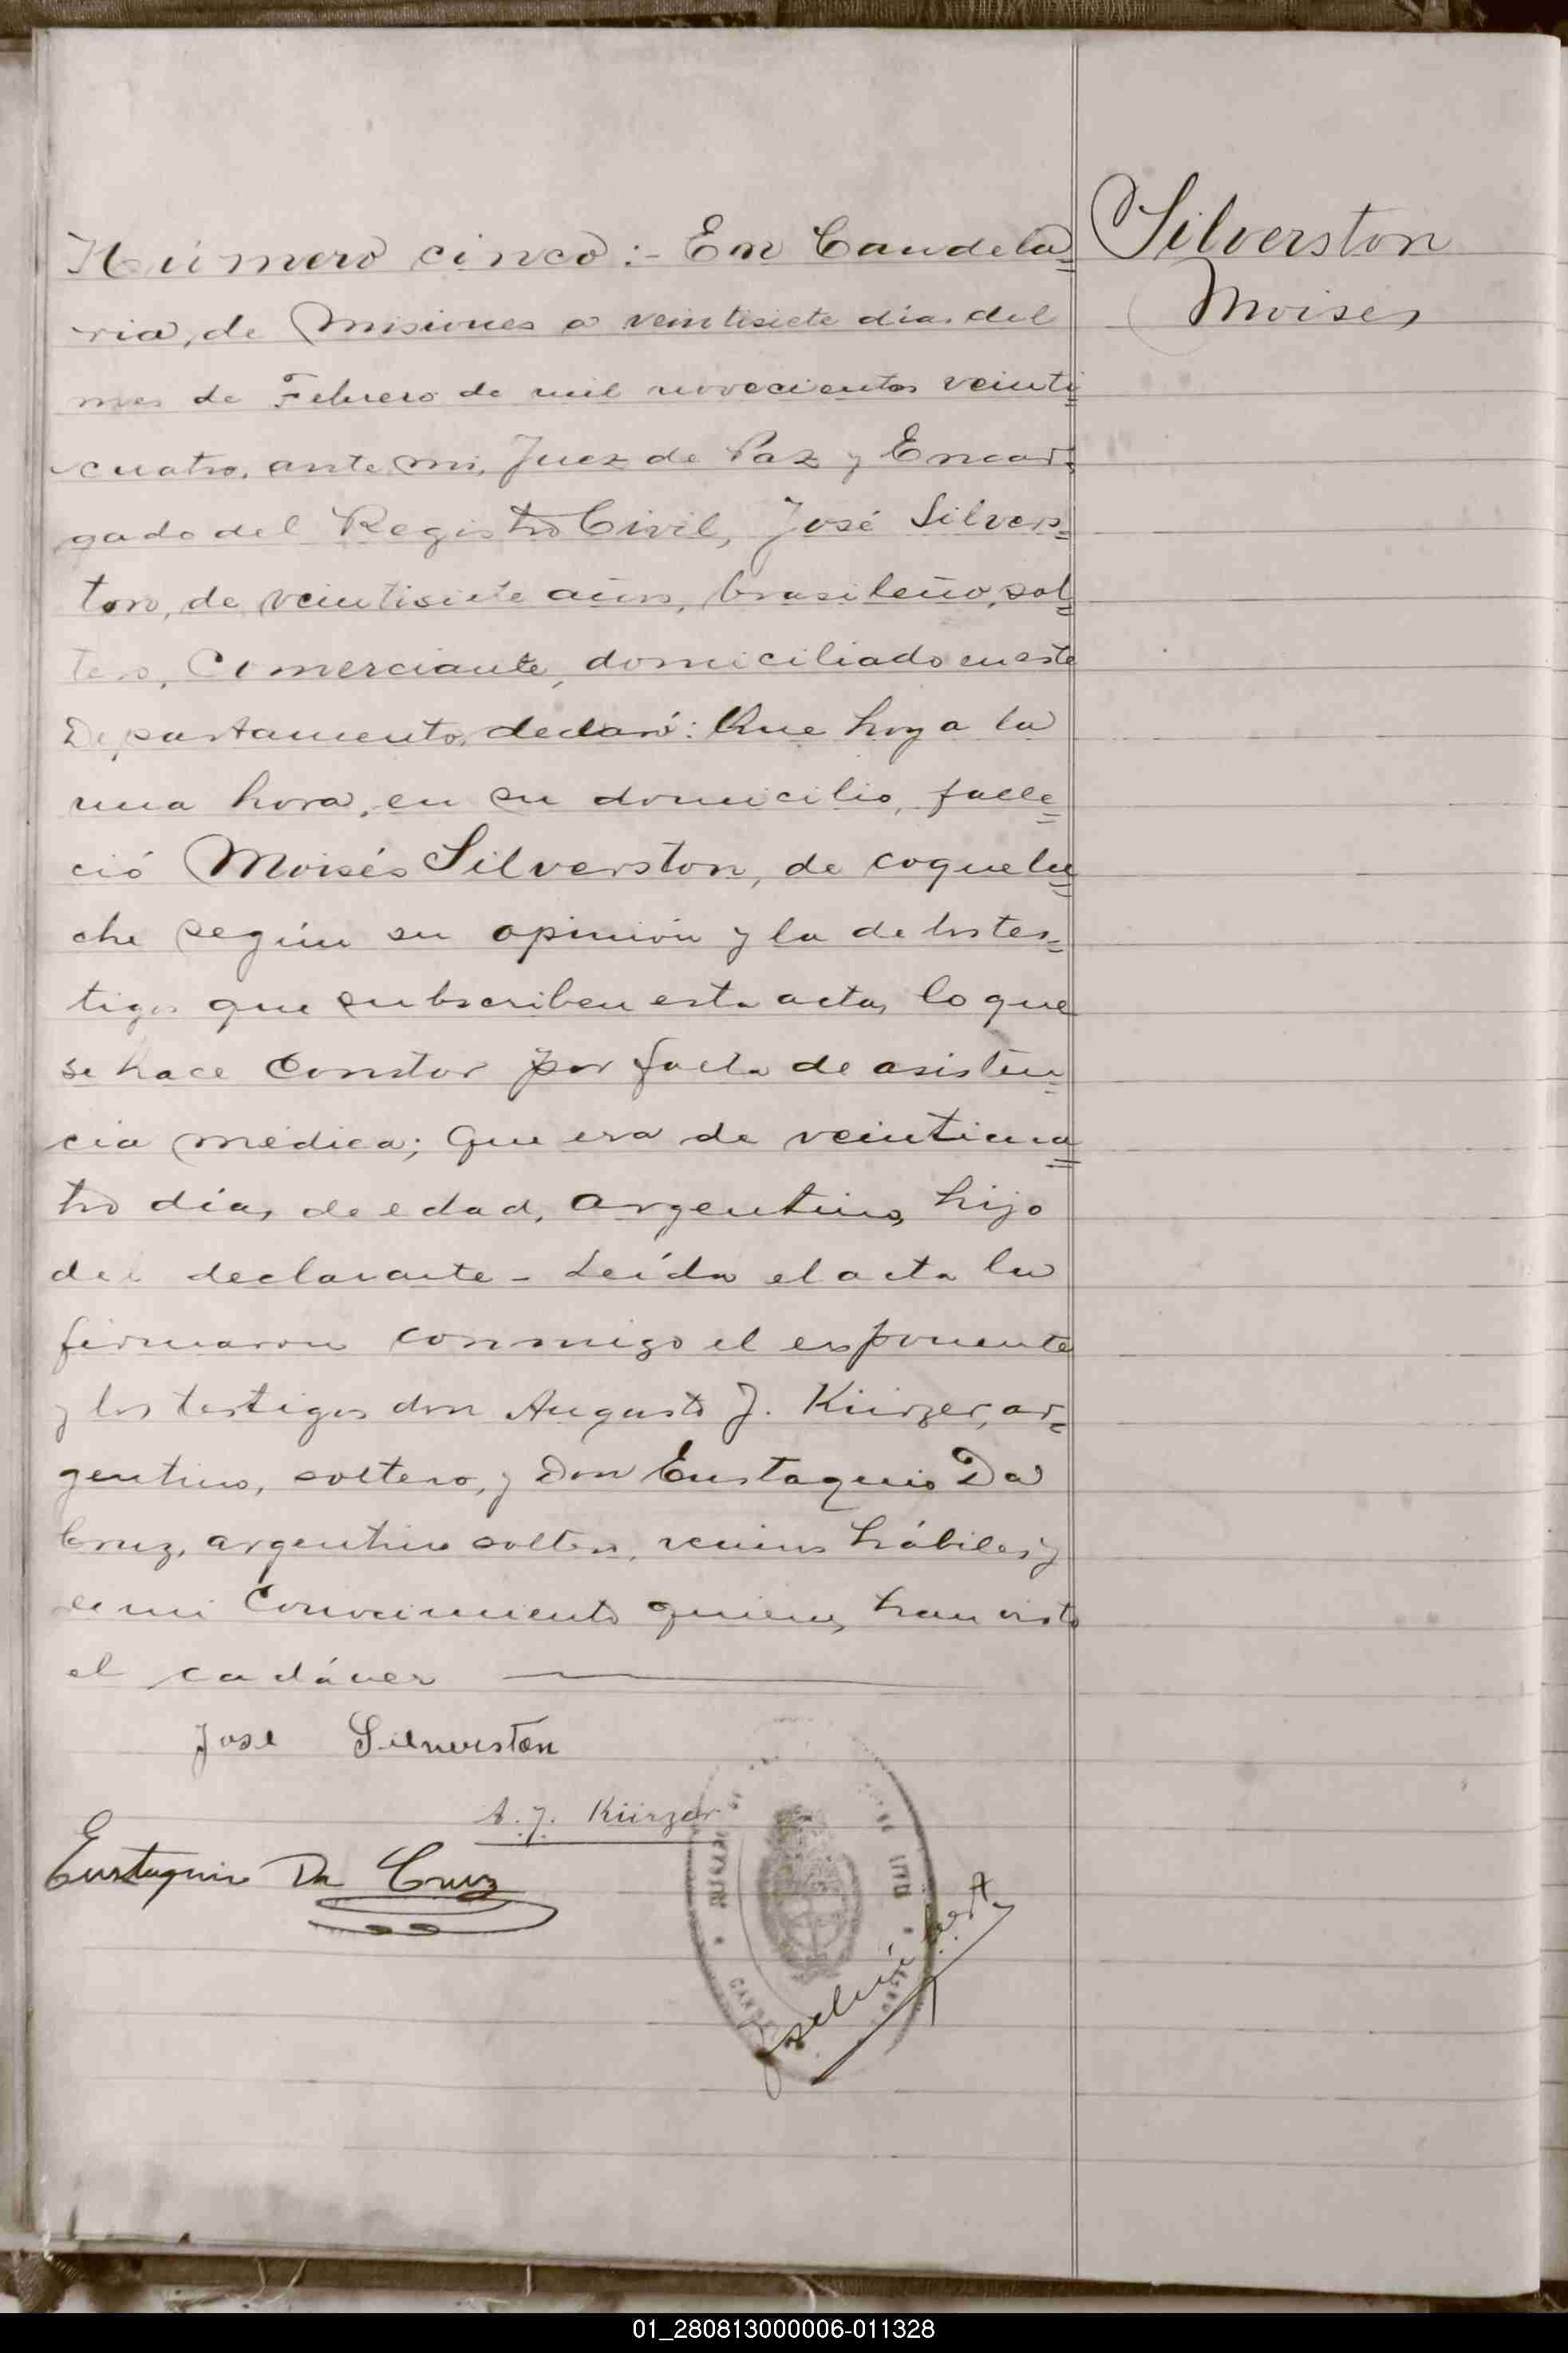 Número cinco:- En Candela=
ria, de Misiones a veintisiete dias del
mes de Febrero de mil novecientos veinti=
cuatro, ante mi, Juez de Paz y Encar=
gado del Registro Civil, José Silvers=
ton, de veintisiete años, brasileño, sol=
tero, Comerciante, domiciliado en este
Departamento, declaró: Que hoy a la
una hora, en su domicilio, falle=
ció Moisés Silverston, de coquelu=
che según su opinión y la de los tes=
tigos que subscriben esta acta, lo que
se hace constar por falta de asisten=
cia médica; que era de veinticua=
tro días de edad, argentino, hijo
del declarante - Leída el acta la
firmaron conmigo el exponente
y los testigos don Augusto J. Kürzer, ar=
gentino, soltero, y Don Eustaquio Da
Cruz, argentino soltero, vecinos hábiles y
de mi conocimiento quienes han visto
el cadáver
Silverston
Moisés
José Silverston
A. J. Kürzer
Eustaquio Da Cruz
01_280813000006-011328